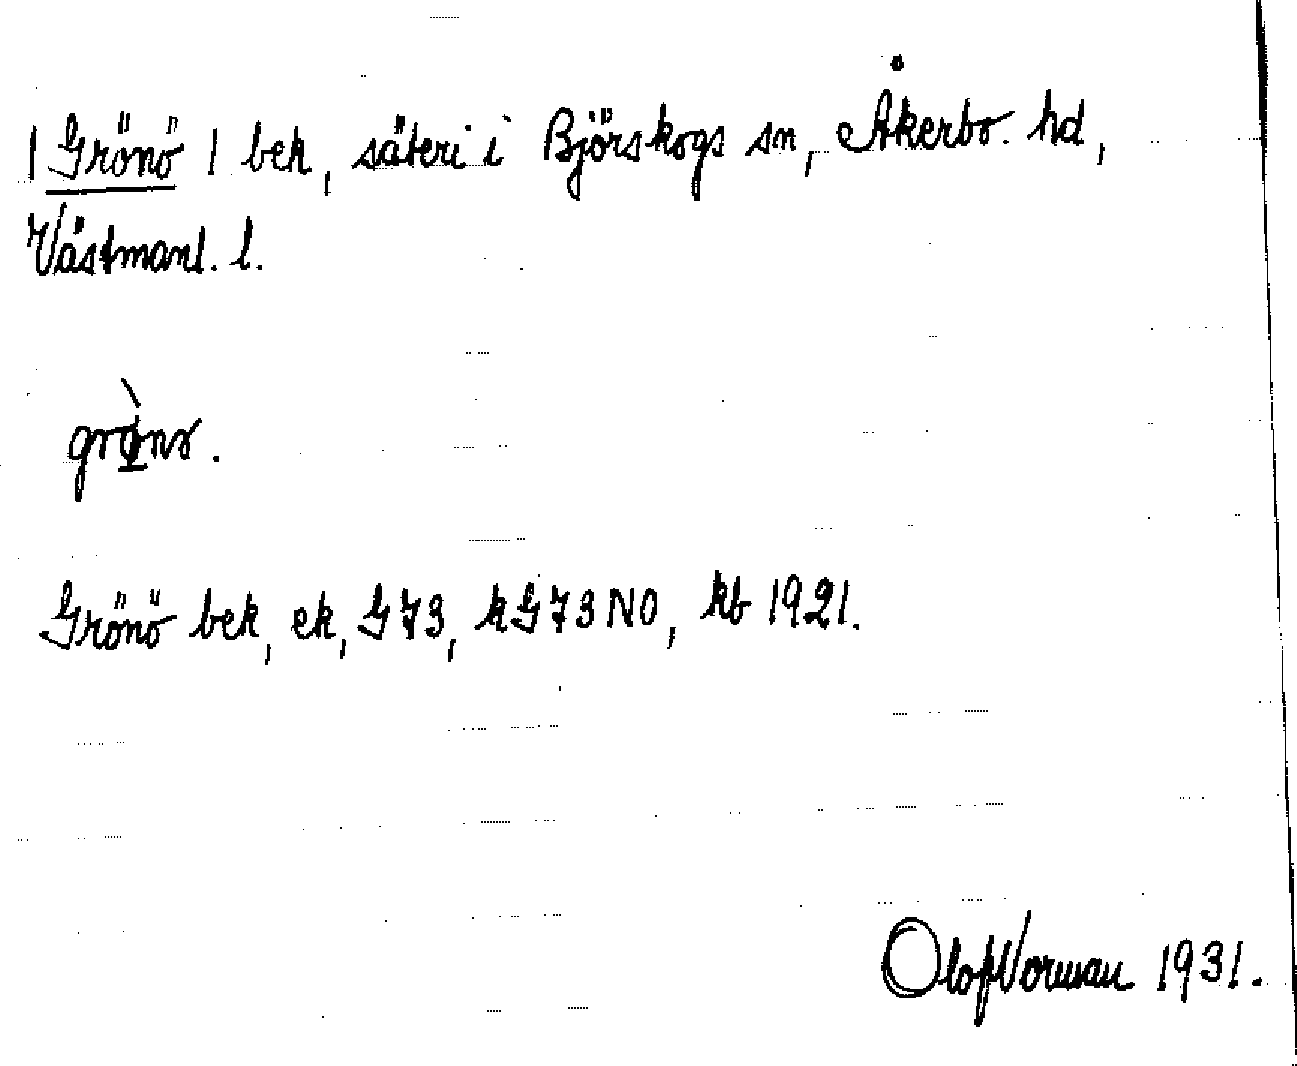 | Grönö | bek, säteri i Björskogs sn, Åkerbo hd,
Västmanl. l.
grø̀nɷ.
Grönö bek, ek, G 73, k G 73 NO, kb 1921.
Olof Norman 1931.